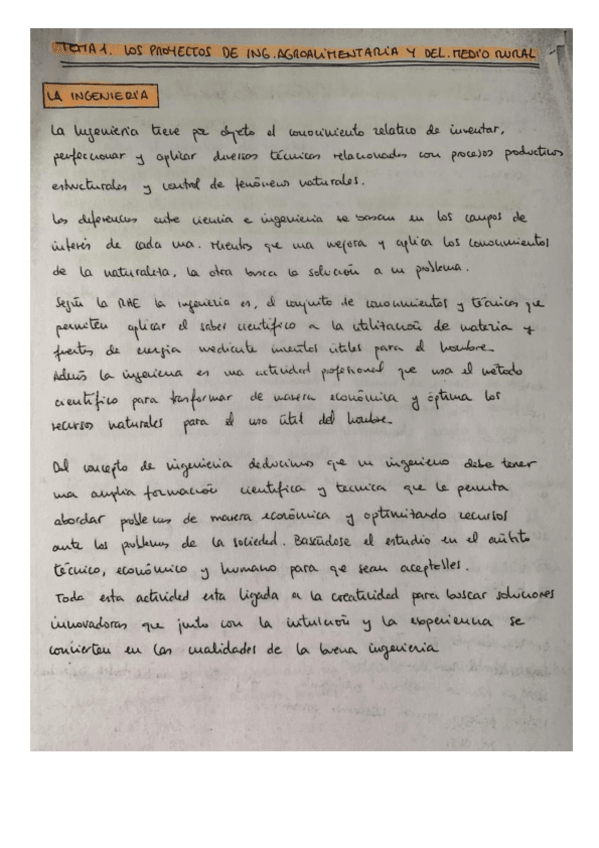 TEMA 1. LOS PROYECTOS DE ING. AGROALIMENTARIA Y DEL MEDIO RURAL
LA INGENIERIA
La Ingenieria tiene por objeto el conocimiento relativo de inventar,
perfeccionar y aplicar diversas técnicas relacionadas con procesos productivos
estructurales y control de fenómenos naturales.
Las diferencias entre ciencia e ingenieria se basan en los campos de
interés de cada una. Mientras que una mejora y aplica los conocimientos
de la naturaleza, la otra busca la solución a un problema.
Según la RAE la ingenieria es, el conjunto de conocimientos y técnicas que
permiten aplicar el saber cientifico a la utilización de materia y
fuentes de energia mediante inventos útiles para el hombre.
Además la ingenieria es una actividad profesional que usa el método
cientifico para transformar de manera económica y óptima los
recursos naturales para el uso útil del hombre.
Del concepto de ingenieria deducimos que un ingeniero debe tener
una amplia formación cientifica y tecnica que le permita
abordar problemas de manera económica y optimizando recursos
ante los problemas de la sociedad. Basándose el estudio en el ámbito
técnico, económico y humano para que sean aceptables.
Toda esta actividad esta ligada a la creatividad para buscar soluciones
innovadoras que junto con la intuición y la experiencia se
convierten en las cualidades de la buena ingenieria